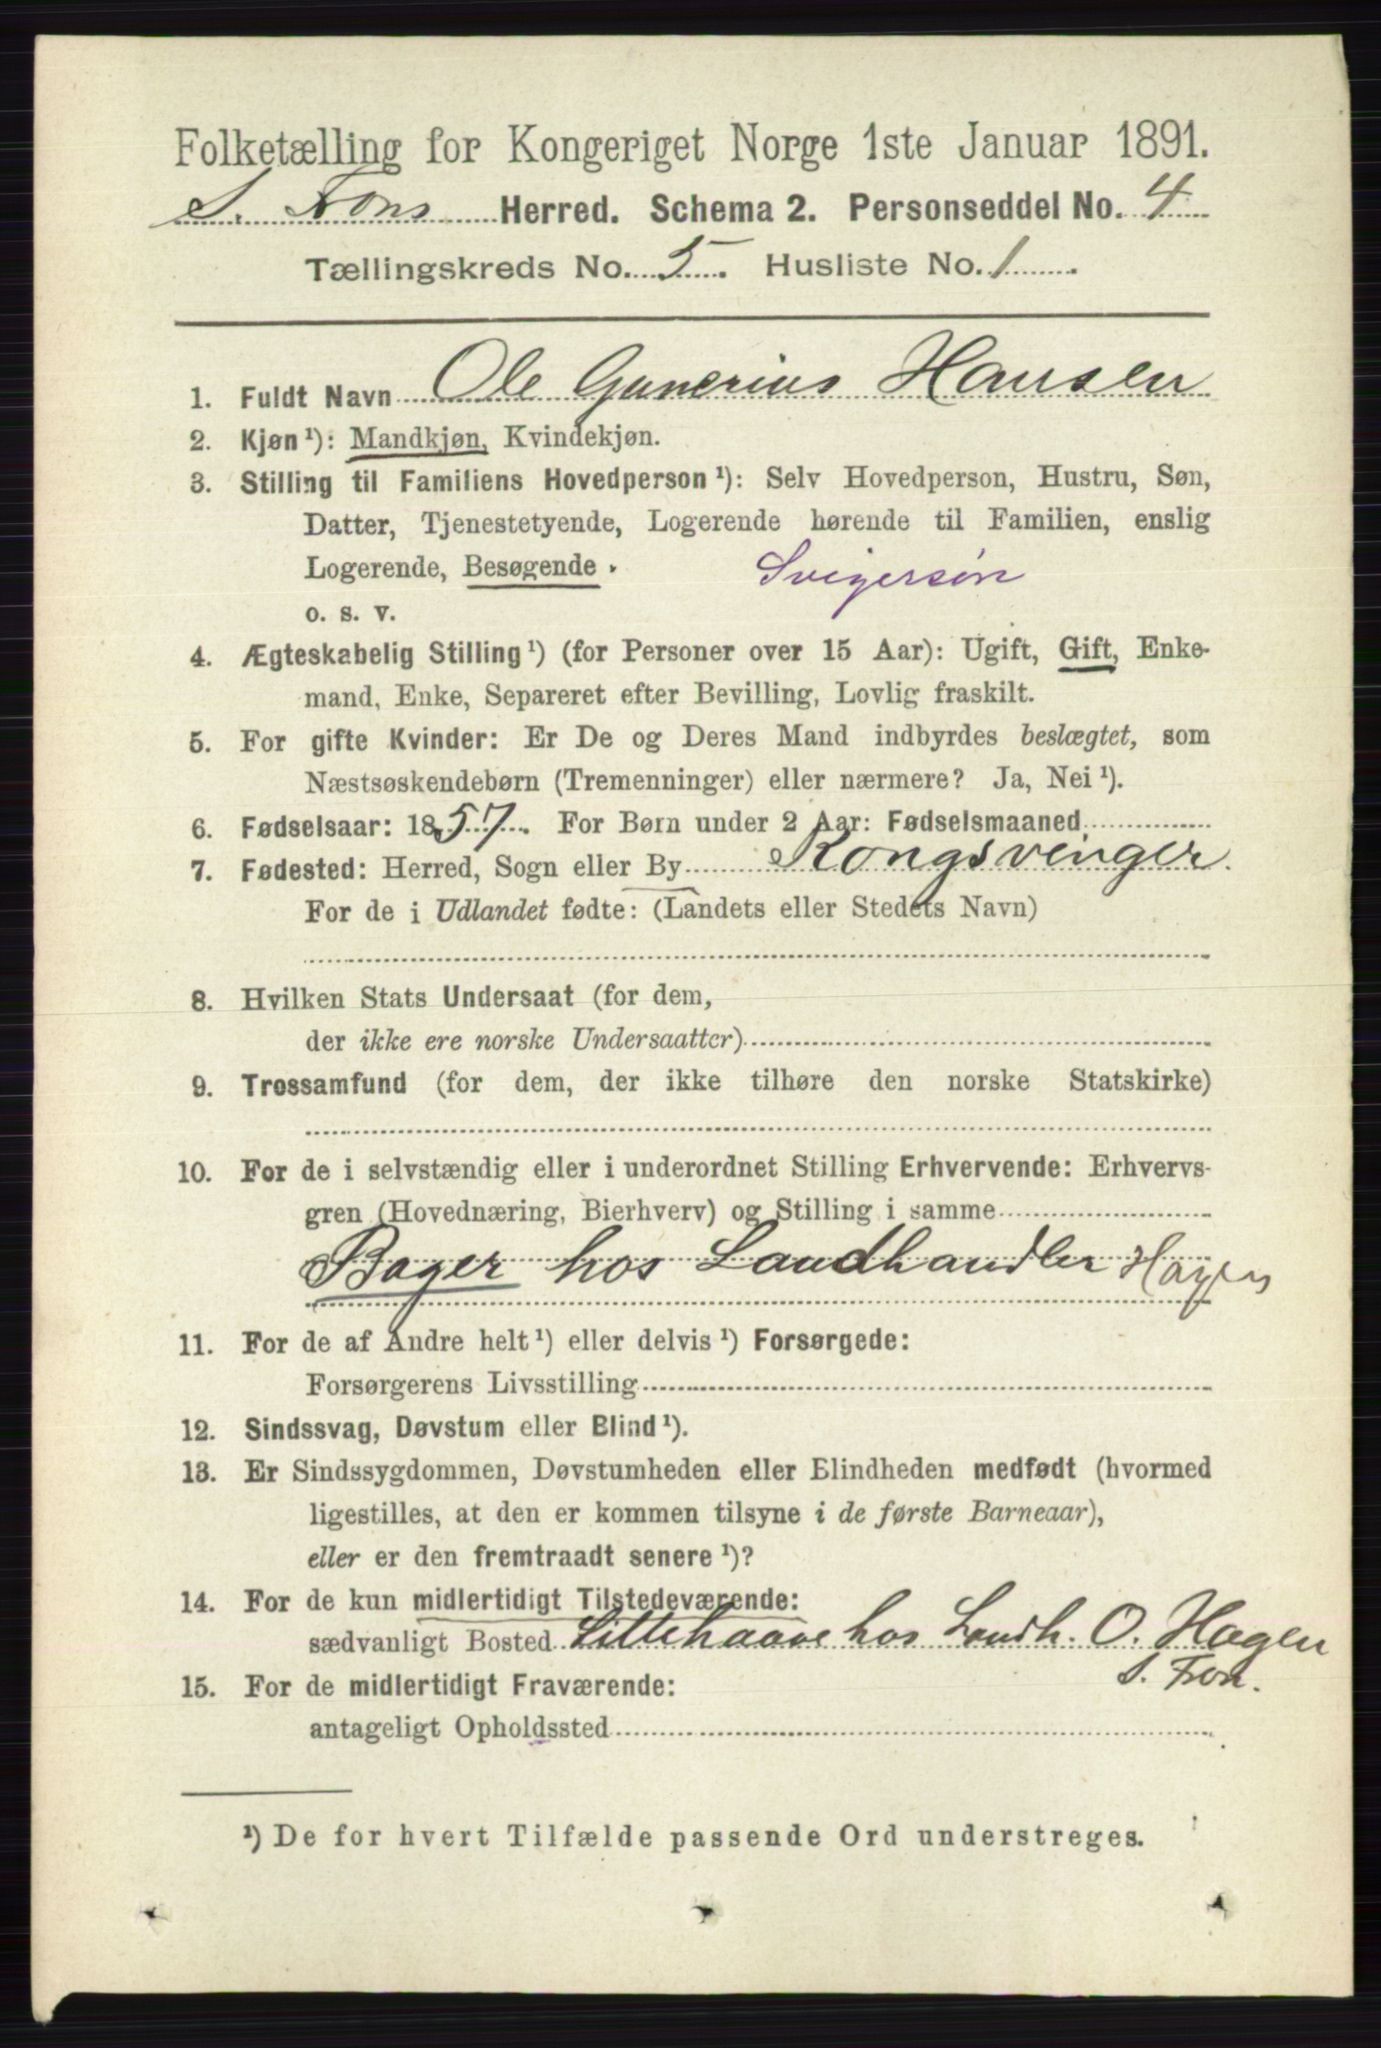 Folketælling for Kongeriget Norge 1ste Januar 1891.
S. Frons Herred. Schema 2. Personseddel No. 4
Tællingskreds No. 5. Husliste No. 1
1. Fuldt Navn Ole Gunerius Hansen
2. Kjøn ¹): Mandkjøn, Kvindekjøn.
3. Stilling til Familiens Hovedperson ¹): Selv Hovedperson, Hustru, Søn,
Datter, Tjenestetyende, Logerende hørende til Familien, enslig
Logerende, Besøgende . Svigersøn
o. s. v.
4. Ægteskabelig Stilling ¹) (for Personer over 15 Aar): Ugift, Gift, Enke-
mand, Enke, Separeret efter Bevilling, Lovlig fraskilt.
5. For gifte Kvinder: Er De og Deres Mand indbyrdes beslægtet, som
Næstsøskendebørn (Tremenninger) eller nærmere? Ja, Nei ¹).
6. Fødselsaar: 1857. For Børn under 2 Aar: Fødselsmaaned
7. Fødested: Herred, Sogn eller By Kongsvinger.
For de i Udlandet fødte: (Landets eller Stedets Navn)
8. Hvilken Stats Undersaat (for dem,
der ikke ere norske Undersaatter)
9. Trossamfund (for dem, der ikke tilhøre den norske Statskirke)
10. For de i selvstændig eller i underordnet Stilling Erhvervende: Erhvervs-
gren (Hovednæring, Bierhverv) og Stilling i samme
Bager hos Landhandler Hagen
11. For de af Andre helt ¹) eller delvis ¹) Forsørgede:
Forsørgerens Livsstilling
12. Sindssvag, Døvstum eller Blind ¹).
13. Er Sindssygdommen, Døvstumheden eller Blindheden medfødt (hvormed
ligestilles, at den er kommen tilsyne i de første Barneaar),
eller er den fremtraadt senere ¹)?
14. For de kun midlertidigt Tilstedeværende:
sædvanligt Bosted Littehaave hos Landh. O. Hagen
S. Fron.
15. For de midlertidigt Fraværende:
antageligt Opholdssted
¹) De for hvert Tilfælde passende Ord understreges.